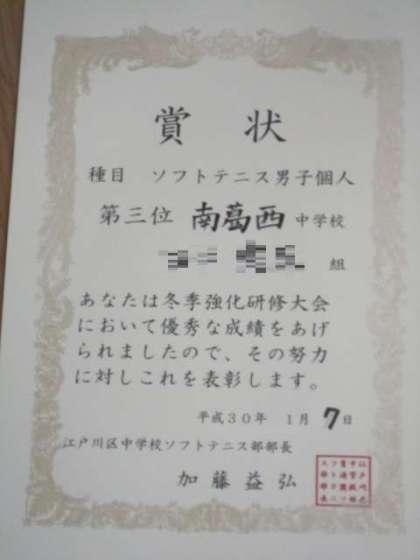 賞状
種目 ソフトテニス男子個人
第三位 南葛西 中学校
組
あなたは冬季強化研修大会
において優秀な成績をあげ
られましたので、その努力
に対しこれを表彰します。
平成30年 1月 7日
江戸川区中学校ソフトテニス部部長
加藤益弘